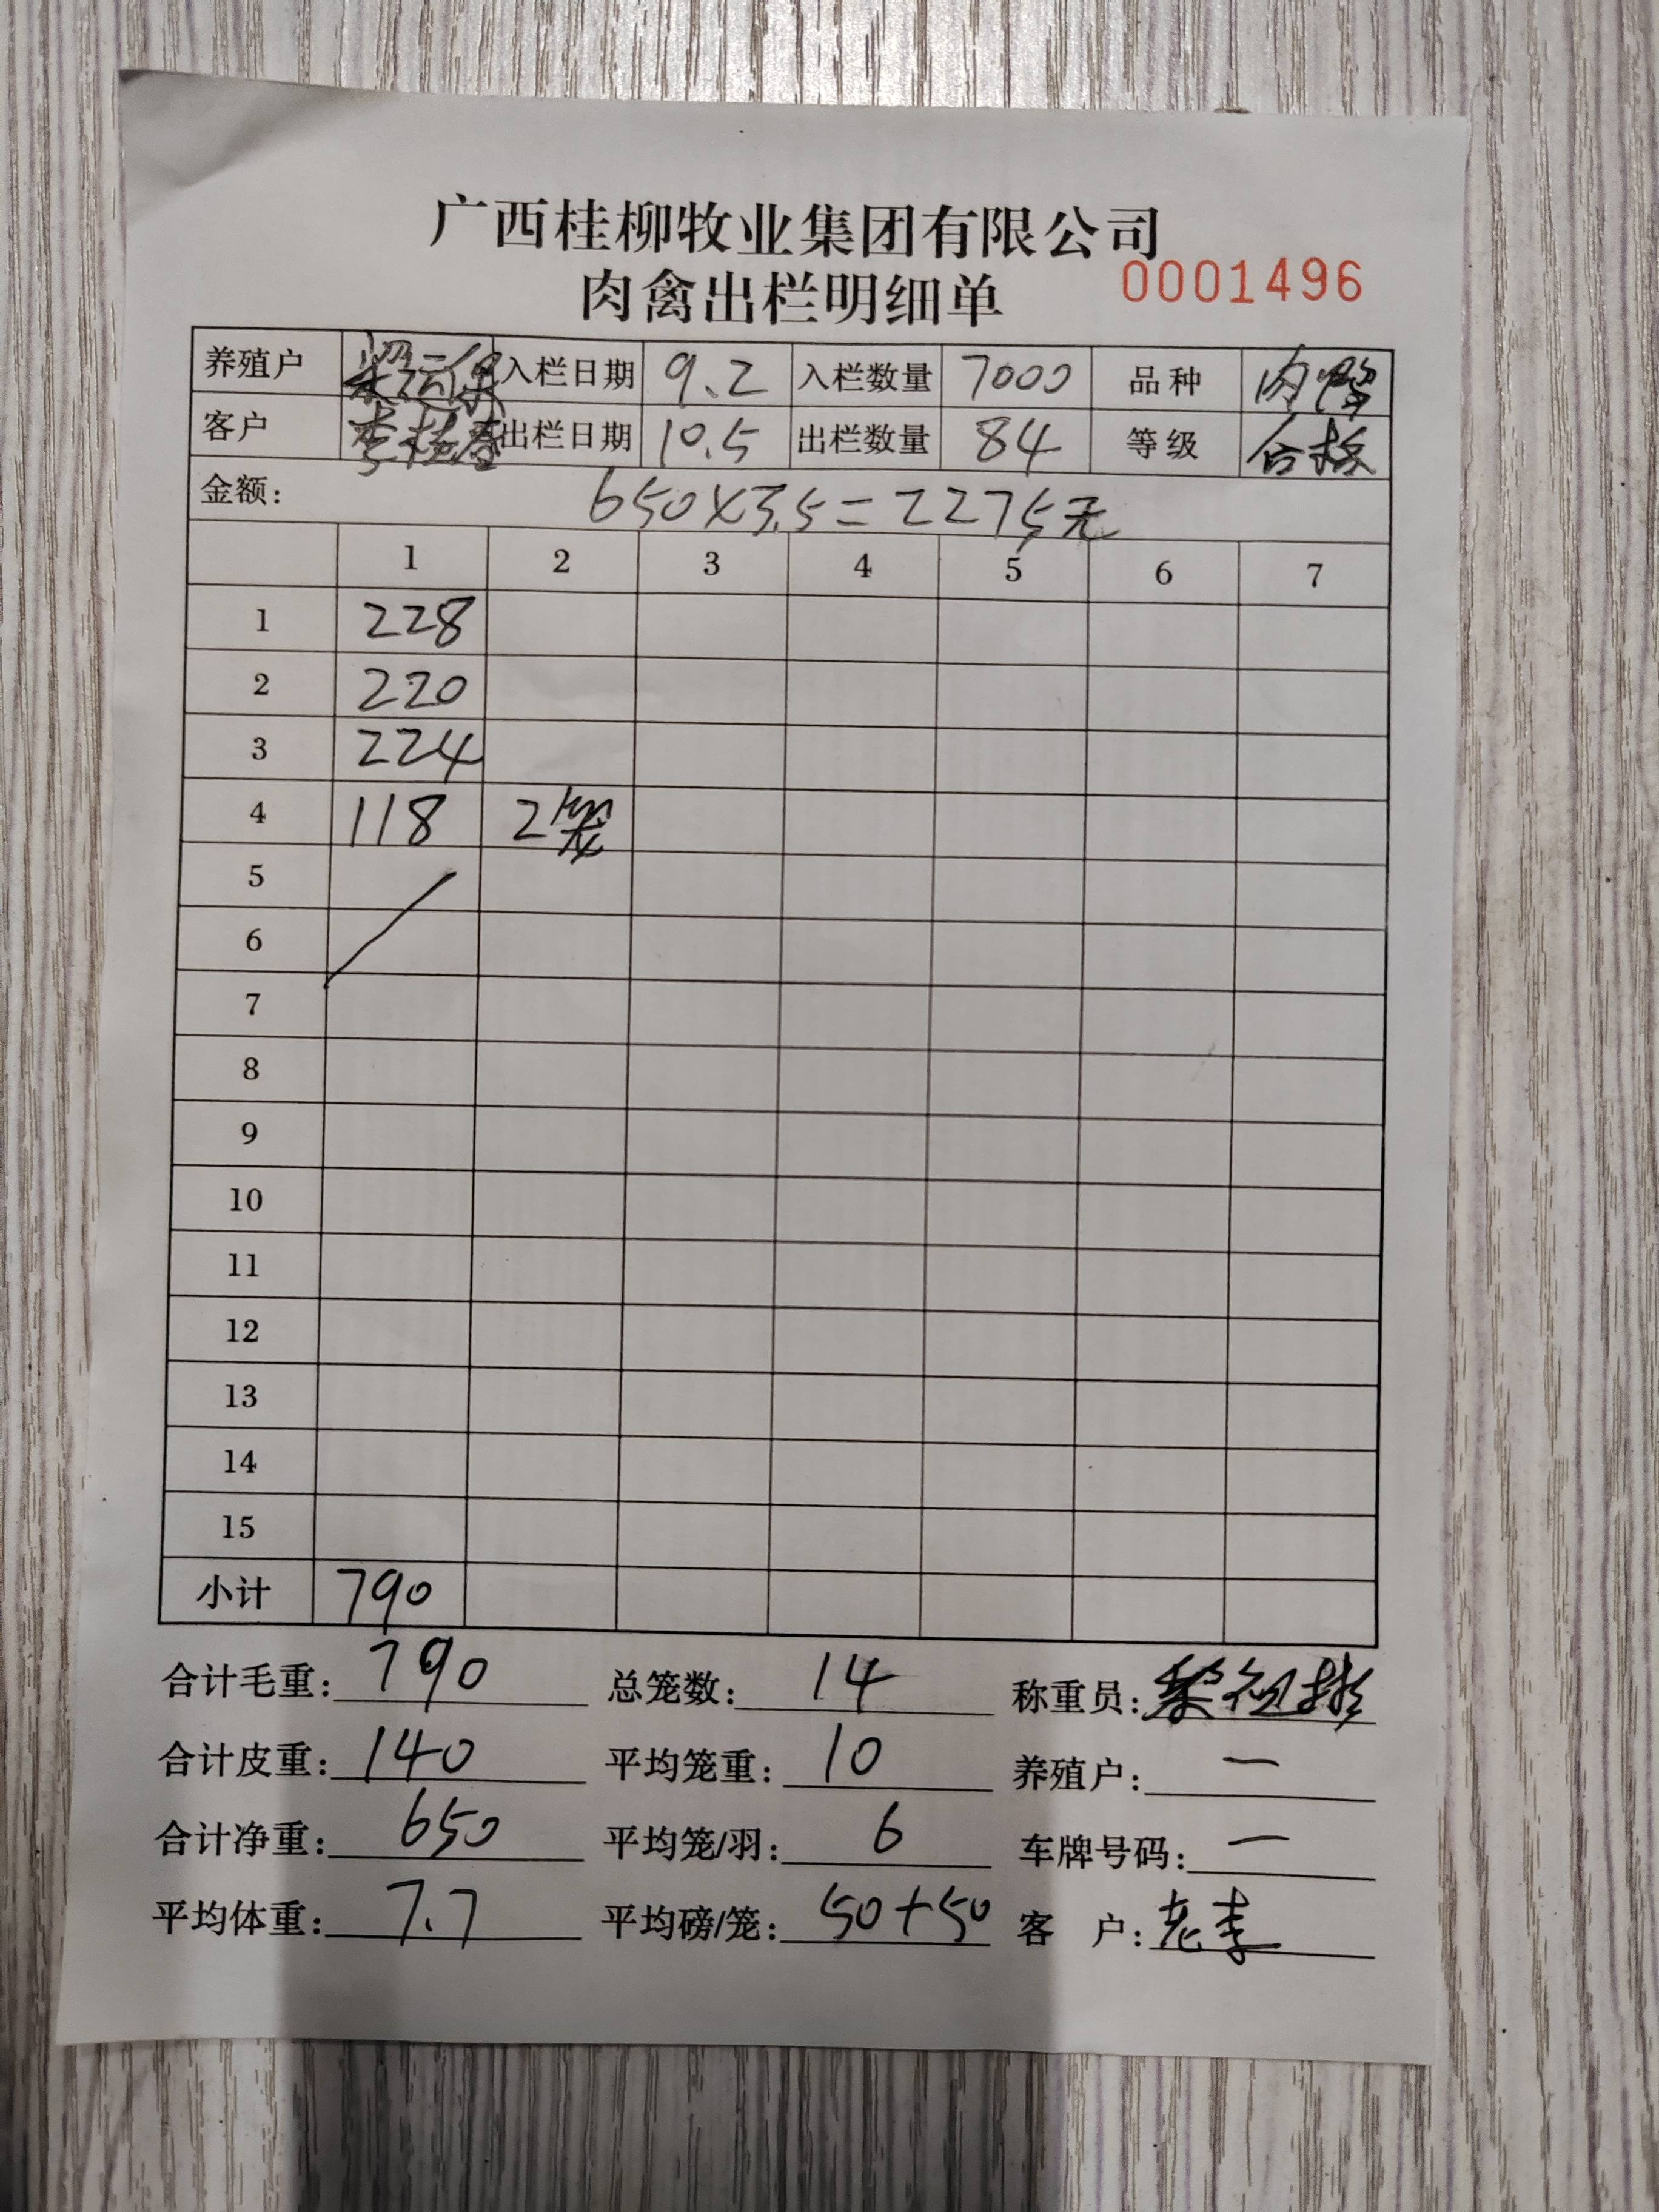 广西桂柳牧业集团有限公司
肉禽出栏明细单 0001496
养殖户 梁运保 入栏日期 9.2 入栏数量 7000 品种 肉鸭
客户 李桂春 出栏日期 10.5 出栏数量 84 等级 合格
金额: 650×3.5=2275元
1 2 3 4 5 6 7
1 228
2 220
3 224
4 118 2笼
5
6
7
8
9
10
11
12
13
14
15
小计 790
合计毛重: 790 总笼数: 14 称重员:
合计皮重: 140 平均笼重: 10 养殖户: 一
合计净重: 650 平均笼/羽: 6 车牌号码: 一
平均体重: 7.7 平均磅/笼: 50+50 客 户: 老李